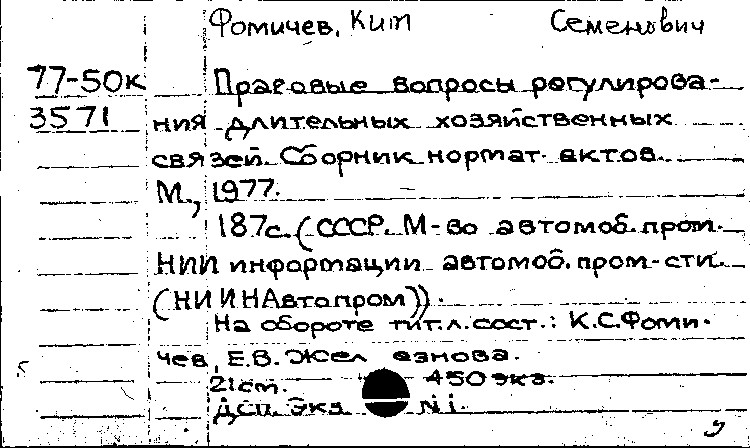 Фомичев, Ким Семенович
77-50к Правовые вопросы регулирова-
3571 ния длительных хозяйственных
связей. Сборник нормат. актов.
М., 1977.
187с. (СССР. М-во автомоб. пром.
НИИ информации автомоб. пром-сти.
(НИИНАвтопром)).
На обороте тит. л. сост.: К.С. Фоми-
чев, Е.В. Желязнова.
21 cm. 450 экз.
ДСП. Экз. N 1.